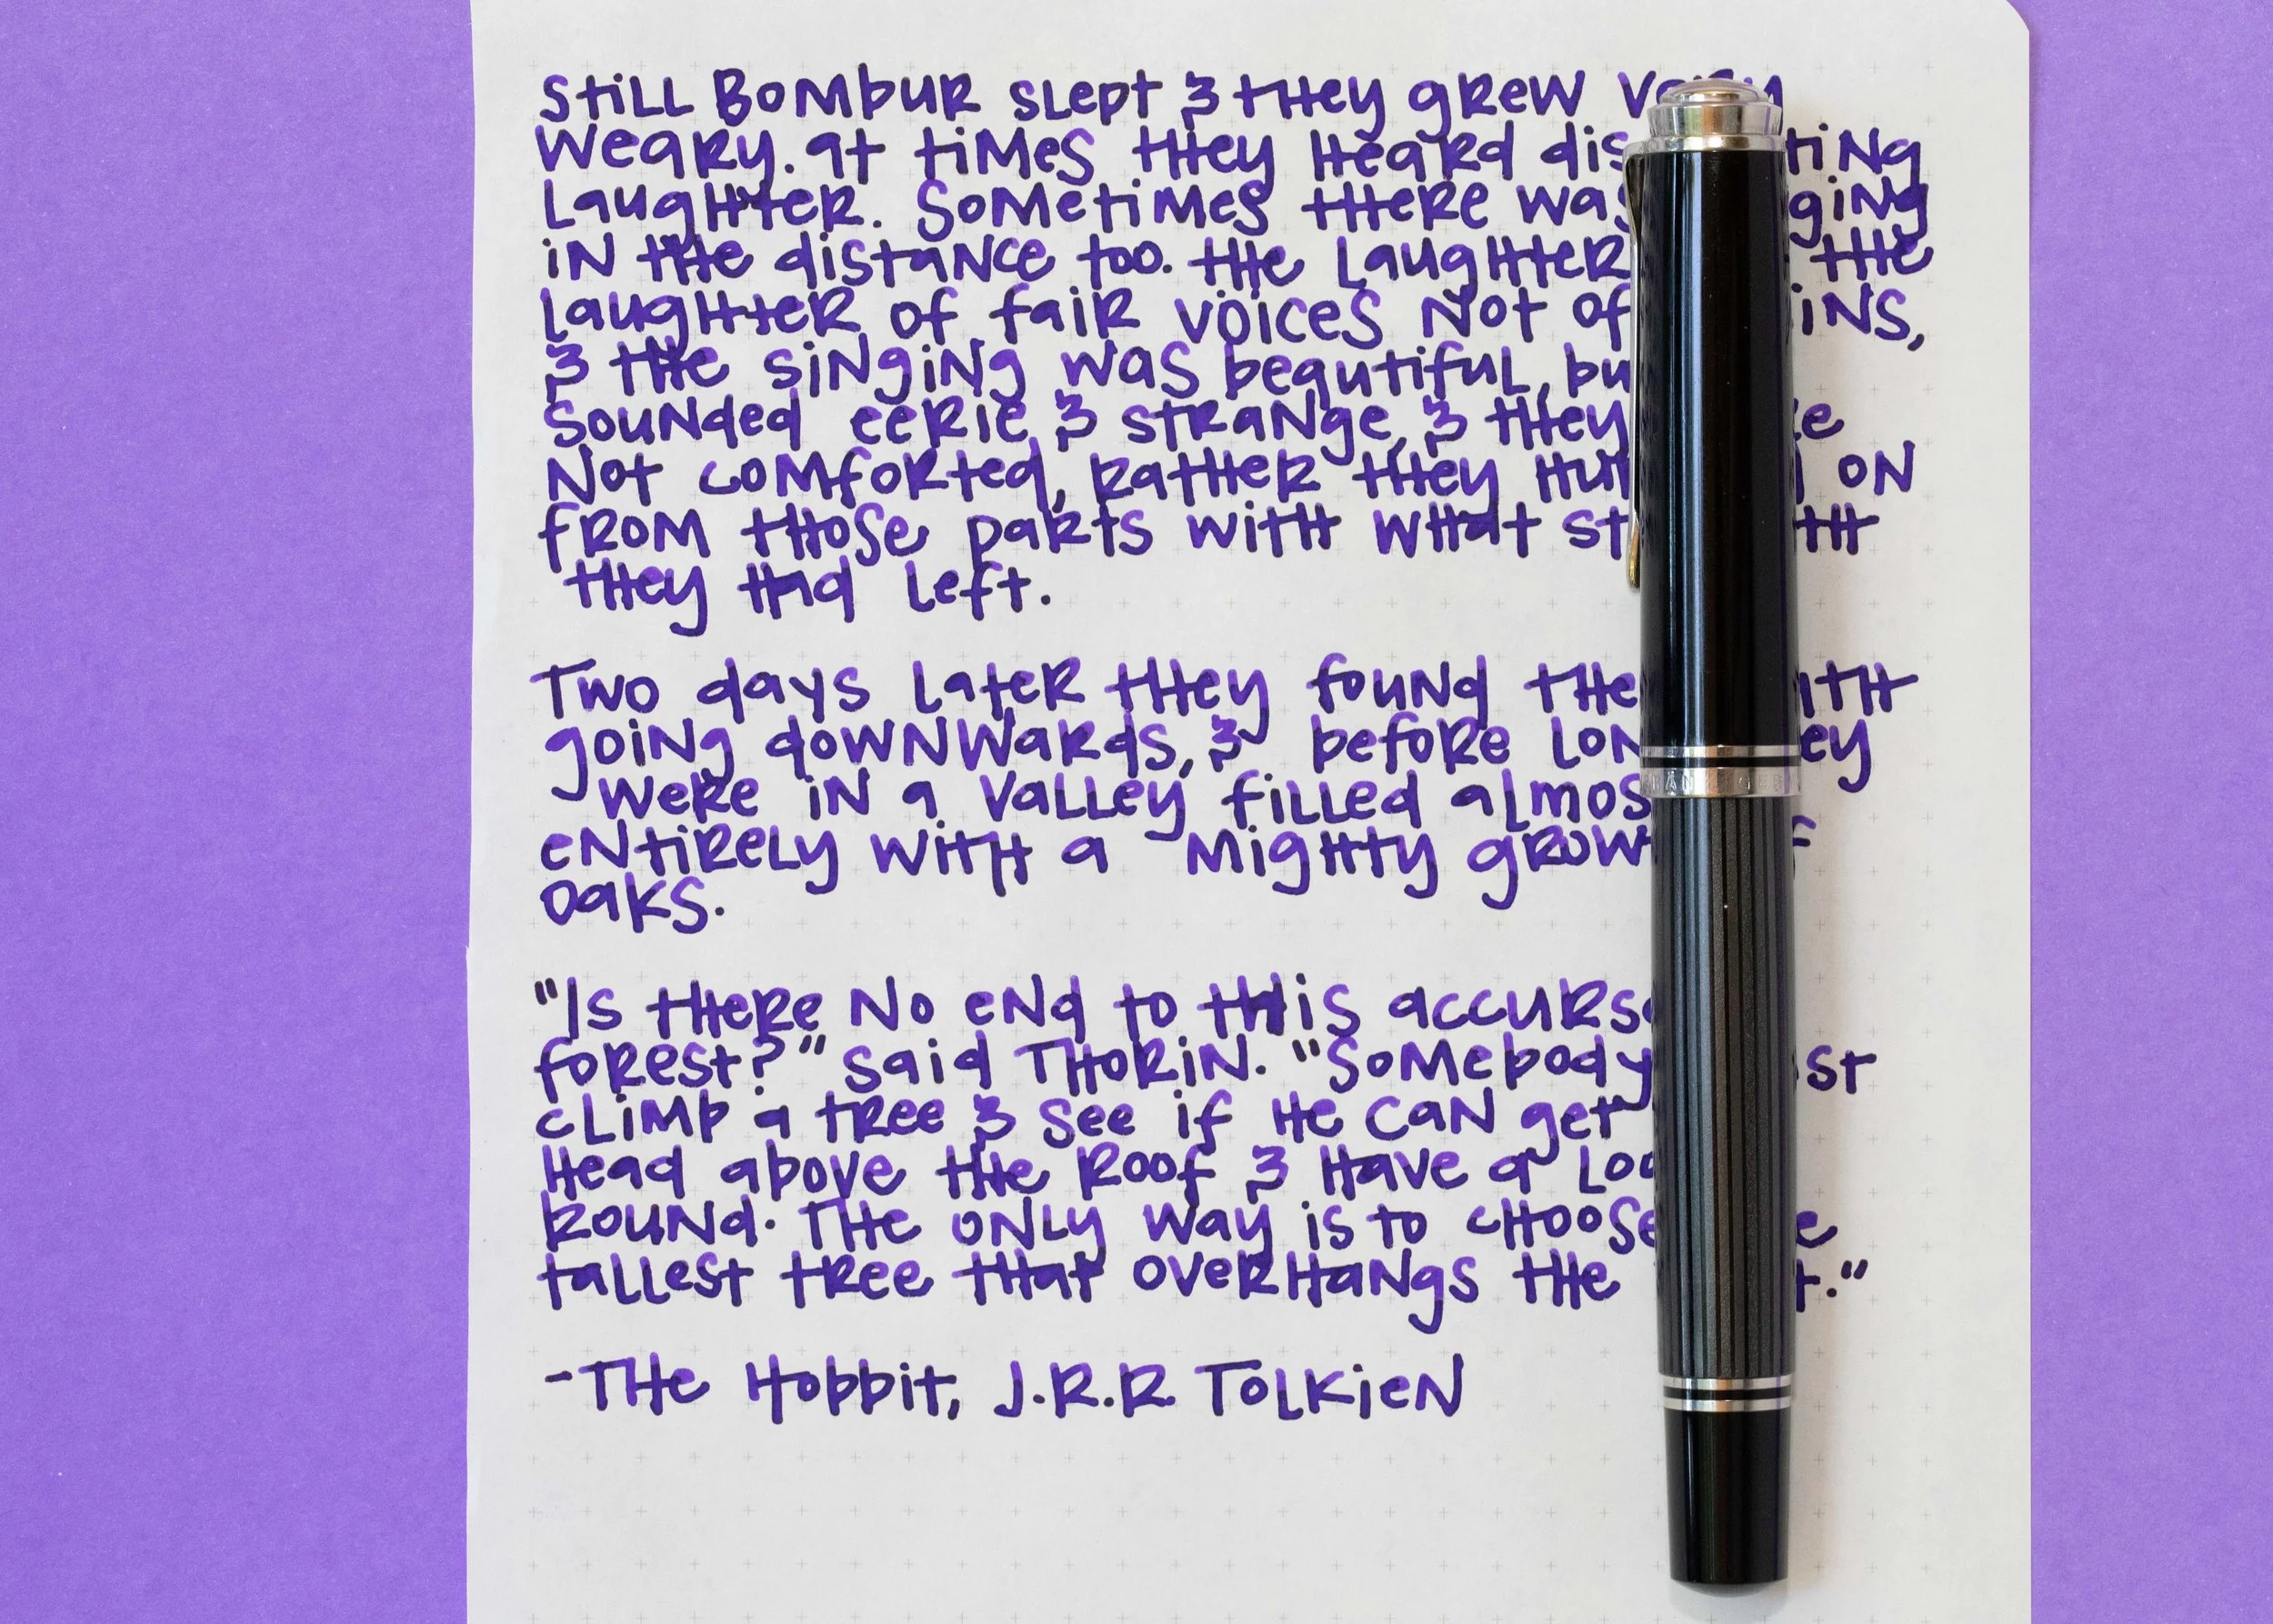 Still Bombur slept & they grew very
weary. at times they heard
laughter. Sometimes there was
in the distance too. the laughter the
laughter of fair voices not of
& the singing was beautiful,
sounded eerie & strange, & they
not comforted, rather they on
from those parts with what
they had left.
Two days later they found the
going downwards, & before
were in a valley filled
entirely with a mighty
oaks.
"Is there no end to this
forest?" said Thorin. "Somebody
climb a tree & see if he can get
head above the roof & have a
round. The only way is to choose
tallest tree that overhangs the
-The Hobbit, J.R.R. Tolkien